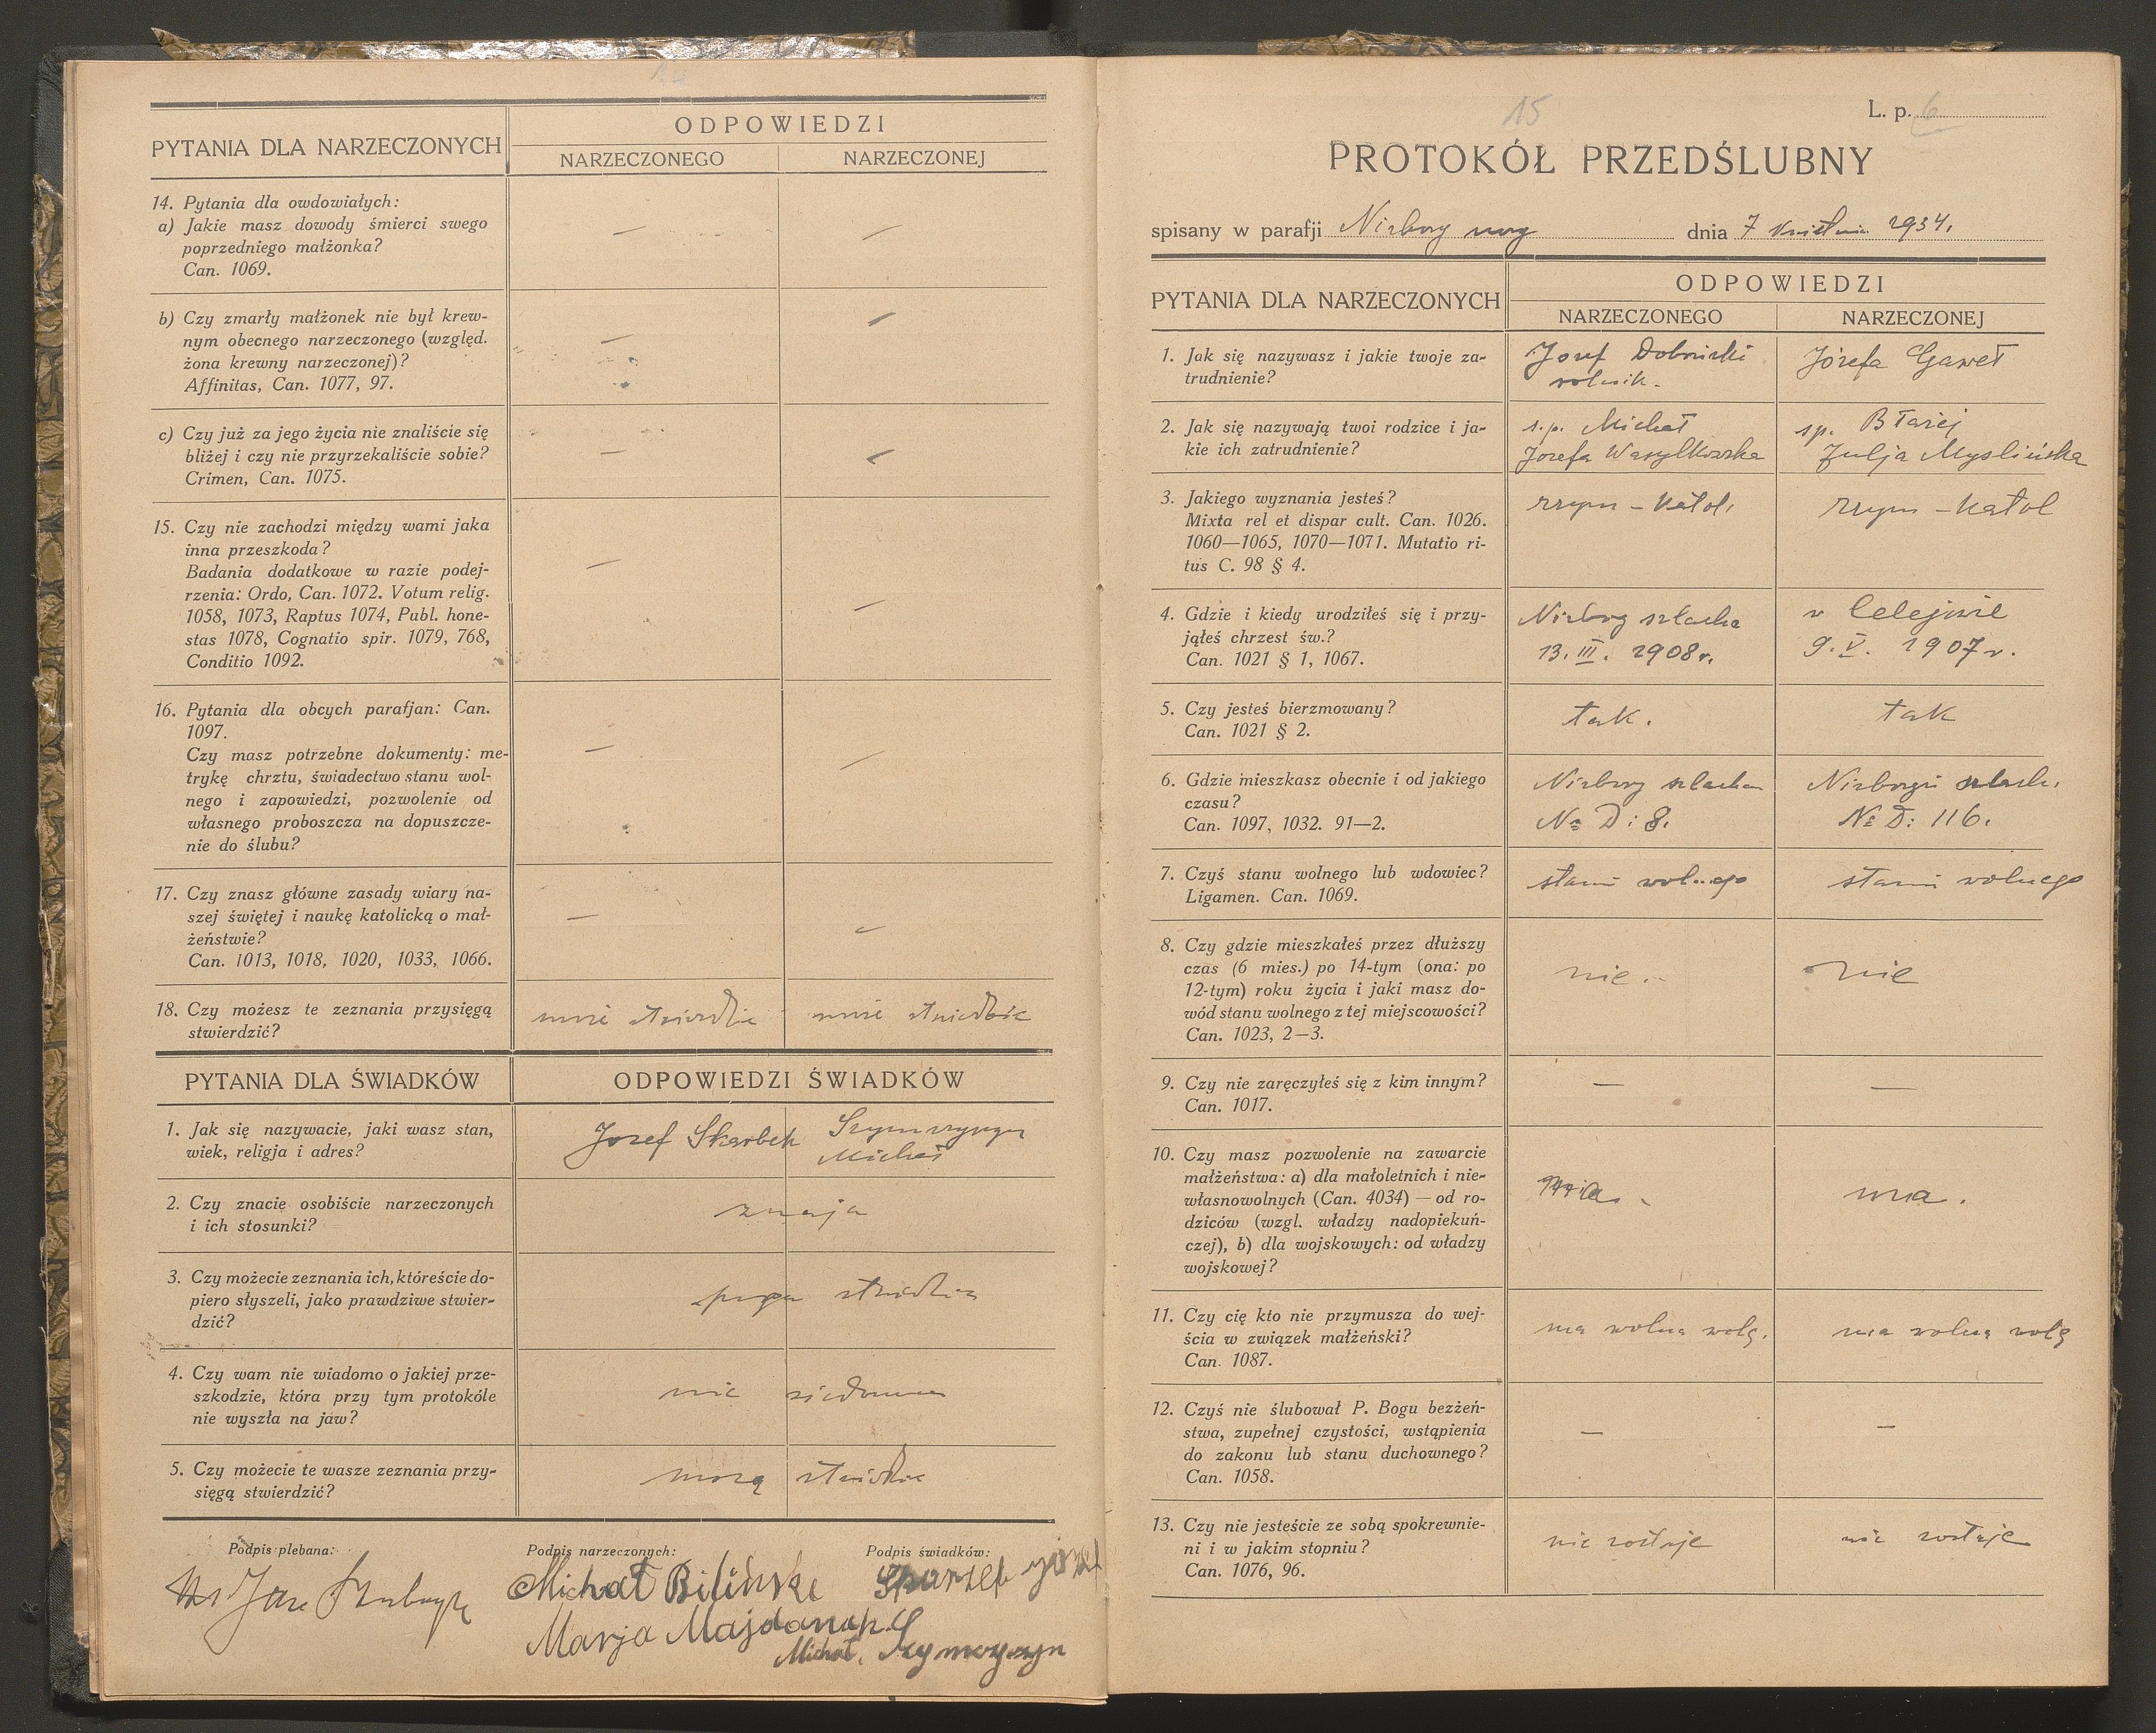 PYTANIA DLA NARZECZONYCH
ODPOWIEDZI
NARZECZONEGO
NARZECZONEJ
14. Pytania dla owdowiałych:
a) Jakie masz dowody śmierci swego
poprzedniego małżonka?
Can. 1069.
—
—
b) Czy zmarły małżonek nie był krew-
nym obecnego narzeczonego (względ.
żona krewny narzeczonej)?
Affinitas, Can. 1077, 97.
—
—
c) Czy już za jego życia nie znaliście się
bliżej i czy nie przyrzekaliście sobie?
Crimen, Can. 1075.
—
—
15. Czy nie zachodzi między wami jaka
inna przeszkoda?
Badania dodatkowe w razie podej-
rzenia: Ordo, Can. 1072. Votum relig.
1058, 1073, Raptus 1074, Publ. hone-
stas 1078, Cognatio spir. 1079, 768,
Conditio 1092.
—
—
16. Pytania dla obcych parafjan: Can.
1097.
Czy masz potrzebne dokumenty: me-
trykę chrztu, świadectwo stanu wol-
nego i zapowiedzi, pozwolenie od
własnego proboszcza na dopuszcze-
nie do ślubu?
—
—
17. Czy znasz główne zasady wiary na-
szej świętej i naukę katolicką o mał-
żeństwie?
Can. 1013, 1018, 1020, 1033, 1066.
—
—
18. Czy możesz te zeznania przysięgą
stwierdzić?
może stwierdzić
może stwierdzić
PYTANIA DLA ŚWIADKÓW
ODPOWIEDZI ŚWIADKÓW
1. Jak się nazywacie, jaki wasz stan,
wiek, religja i adres?
Jozef Skarbek
Michał
2. Czy znacie osobiście narzeczonych
i ich stosunki?
znają
3. Czy możecie zeznania ich, któreście do-
piero słyszeli, jako prawdziwe stwier-
dzić?
4. Czy wam nie wiadomo o jakiej prze-
szkodzie, która przy tym protokóle
nie wyszła na jaw?
nic wiadomo
5. Czy możecie te wasze zeznania przy-
sięgą stwierdzić?
mogą stwierdzić
Podpis plebana:
Podpis narzeczonych:
Podpis świadków:
Michał Biliński
Marja Majdanik
Michał
15
L. p. 6
PROTOKÓŁ PRZEDŚLUBNY
spisany w parafji Niżborg nowy dnia 7 kwietnia 1934.
PYTANIA DLA NARZECZONYCH
ODPOWIEDZI
NARZECZONEGO
NARZECZONEJ
1. Jak się nazywasz i jakie twoje za-
trudnienie?
Józef
rolnik.
Józefa Gaweł
2. Jak się nazywają twoi rodzice i ja-
kie ich zatrudnienie?
s.p. Michał
Jozefa Wasylkowska
sp. Błażej
Julja Myslińska
3. Jakiego wyznania jesteś?
Mixta rel et dispar cult. Can. 1026.
1060—1065, 1070—1071. Mutatio ri-
tus C. 98 § 4.
rzym - katol.
rzym - katol
4. Gdzie i kiedy urodziłeś się i przy-
jąłeś chrzest św.?
Can. 1021 § 1, 1067.
Niżborg szlachec
13. III. 1908 r.
w Celejowie
9. V. 1907 r.
5. Czy jesteś bierzmowany?
Can. 1021 § 2.
tak.
tak
6. Gdzie mieszkasz obecnie i od jakiego
czasu?
Can. 1097, 1032. 91—2.
Niżborg szlachec
No D: 8.
Niżborgu szlach.
No D: 116.
7. Czyś stanu wolnego lub wdowiec?
Ligamen. Can. 1069.
stanu wolnego
stanu wolnego
8. Czy gdzie mieszkałeś przez dłuższy
czas (6 mies.) po 14-tym (ona: po
12-tym) roku życia i jaki masz do-
wód stanu wolnego z tej miejscowości?
Can. 1023, 2—3.
nie.
nie
9. Czy nie zaręczyłeś się z kim innym?
Can. 1017.
—
—
10. Czy masz pozwolenie na zawarcie
małżeństwa: a) dla małoletnich i nie-
własnowolnych (Can. 4034) — od ro-
dziców (wzgl. władzy nadopiekuń-
czej), b) dla wojskowych: od władzy
wojskowej?
ma.
ma.
11. Czy cię kto nie przymusza do wej-
ścia w związek małżeński?
Can. 1087.
ma wolną wolę.
ma wolną wolę
12. Czyś nie ślubował P. Bogu bezżeń-
stwa, zupełnej czystości, wstąpienia
do zakonu lub stanu duchownego?
Can. 1058.
—
—
13. Czy nie jesteście ze sobą spokrewnie-
ni i w jakim stopniu?
Can. 1076, 96.
nie
nie